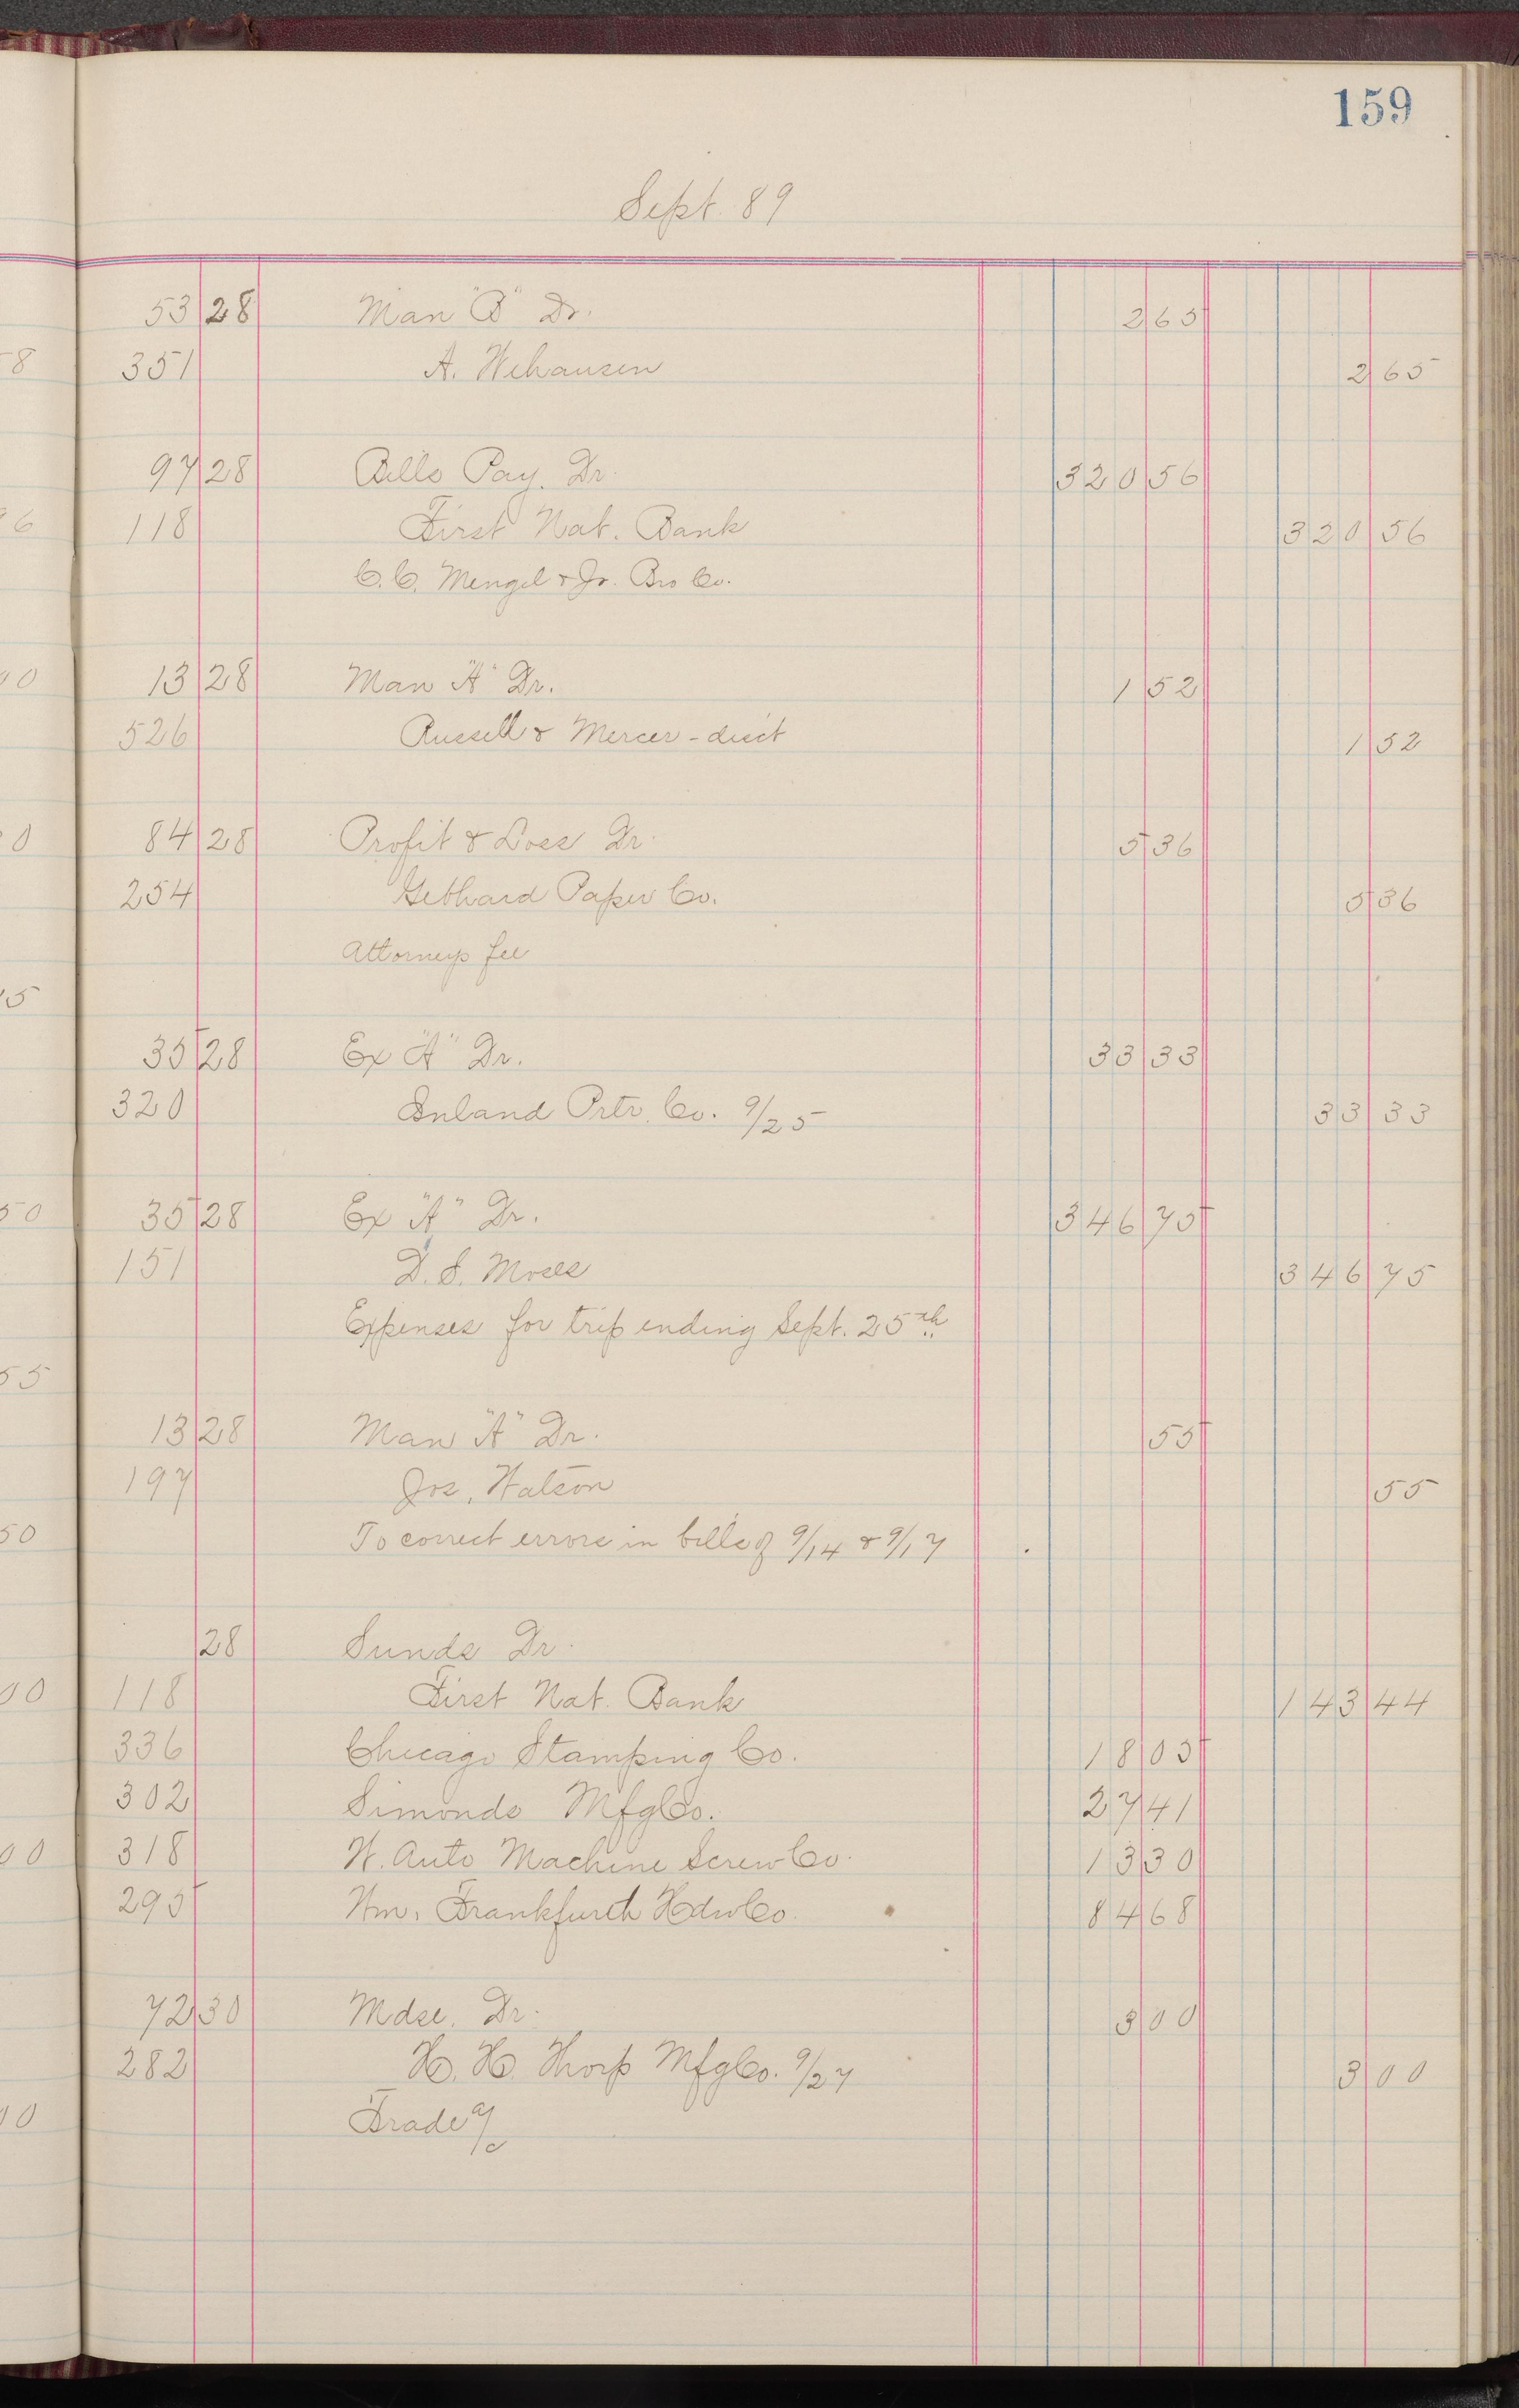 159
Sept. 89
53 28 Man "B" Dr. 2 65
351 A. Wehausen 2 65
97 28 Bills Pay. Dr. 320 56
118 First Nat. Bank 320 56
C.C. Mengel & Jr. Bro Co.
13 28 Man "A" Dr. 1 52
526 Russell & Mercer - disct 1 52
84 28 Profit & Loss Dr. 5 36
254 Gebhard Paper Co. 5 36
Attorneys fee
35 28 Ex "A" Dr. 33 33
320 Inland Prtr. Co. 9/25 33 33
35 28 Ex "A" Dr. 346 75
151 D. S. Moses 346 75
Expenses for trip ending Sept. 25th
13 28 Man "A" Dr. 55
197 Jos. Watson 55
To correct errors in bills of 9/14 & 9/17
28 Sunds Dr.
118 First Nat. Bank 143 44
336 Chicago Stamping Co. 18 05
302 Simonds Mfg Co. 27 41
318 W. Auto Machine Screw Co. 13 30
295 Wm. Frankfurth Hdw Co. 84 68
72 30 Mdse. Dr. 3 00
282 H. H. Thorp Mfg Co. 9/27 3 00
Trade a/c